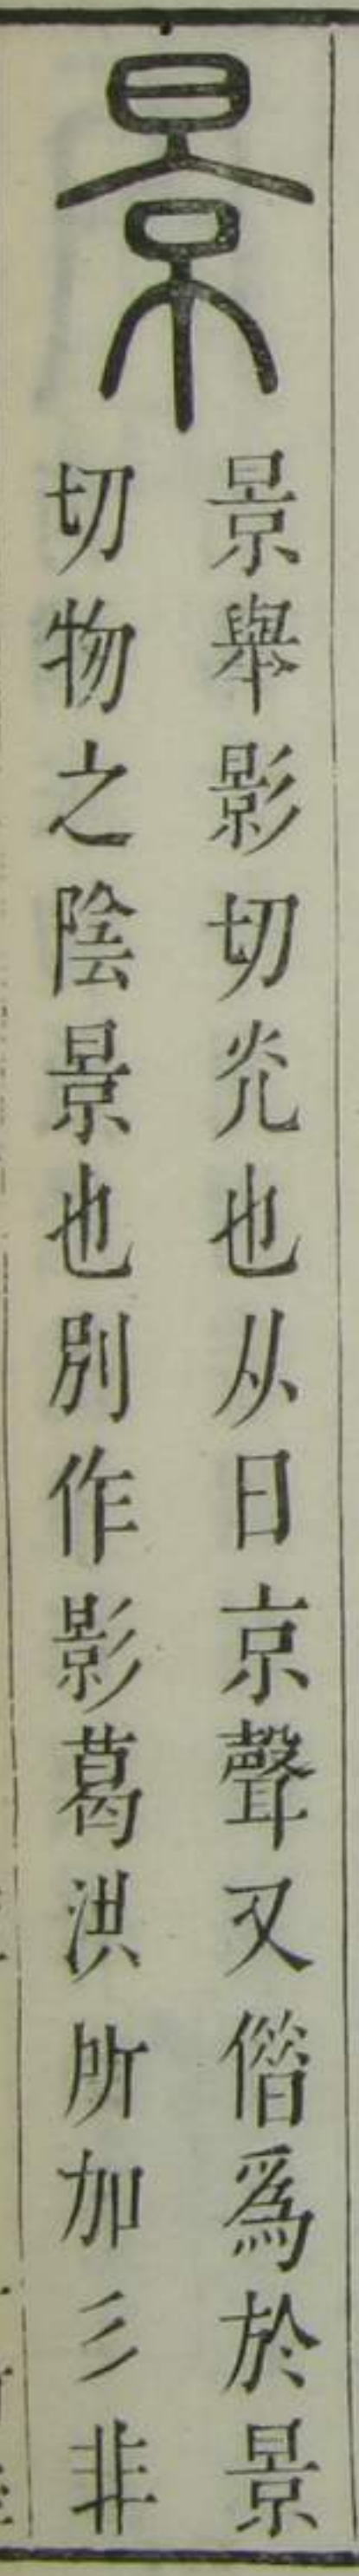 景
景舉影切灮也从日京聲又偕爲於景
切物之陰景也別作影葛洪所加彡非